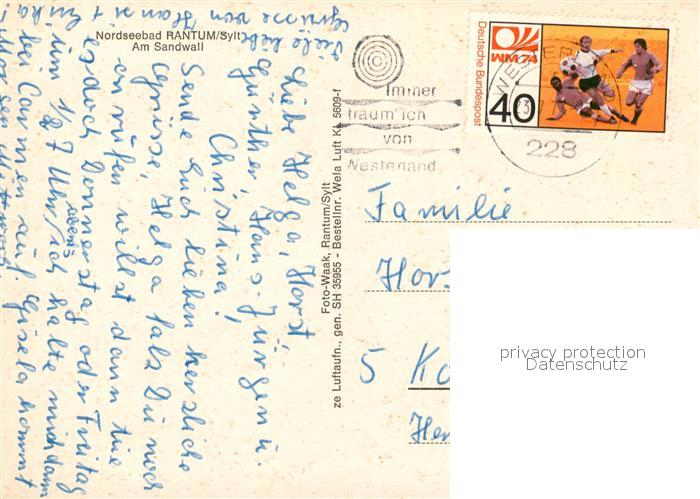 Nordseebad RANTUM/Sylt
Am Sandwall
Liebe Helga, Horst
Günther, Hans-Jürgen u.
Christina!
Sende Euch lieben herzliche
Grüsse, Helga falls Du noch
an rufen willst dann tue
es doch Donnerstag oder Freitag
abends
um 1/2 7 Uhr, ich halte mich dann
bei Carmen auf. Gisela kommt
Viele liebe
Grüsse von
Foto-Waak, Rantum/Sylt
ze Luftaufn., gen. SH 35955 - Bestellnr. Wela Luft K 5609-f
Immer
träum' ich
von
Westerland
Deutsche Bundespost
WM 74
40
228
Familie
Hor
5 Ko
privacy protection
Datenschutz